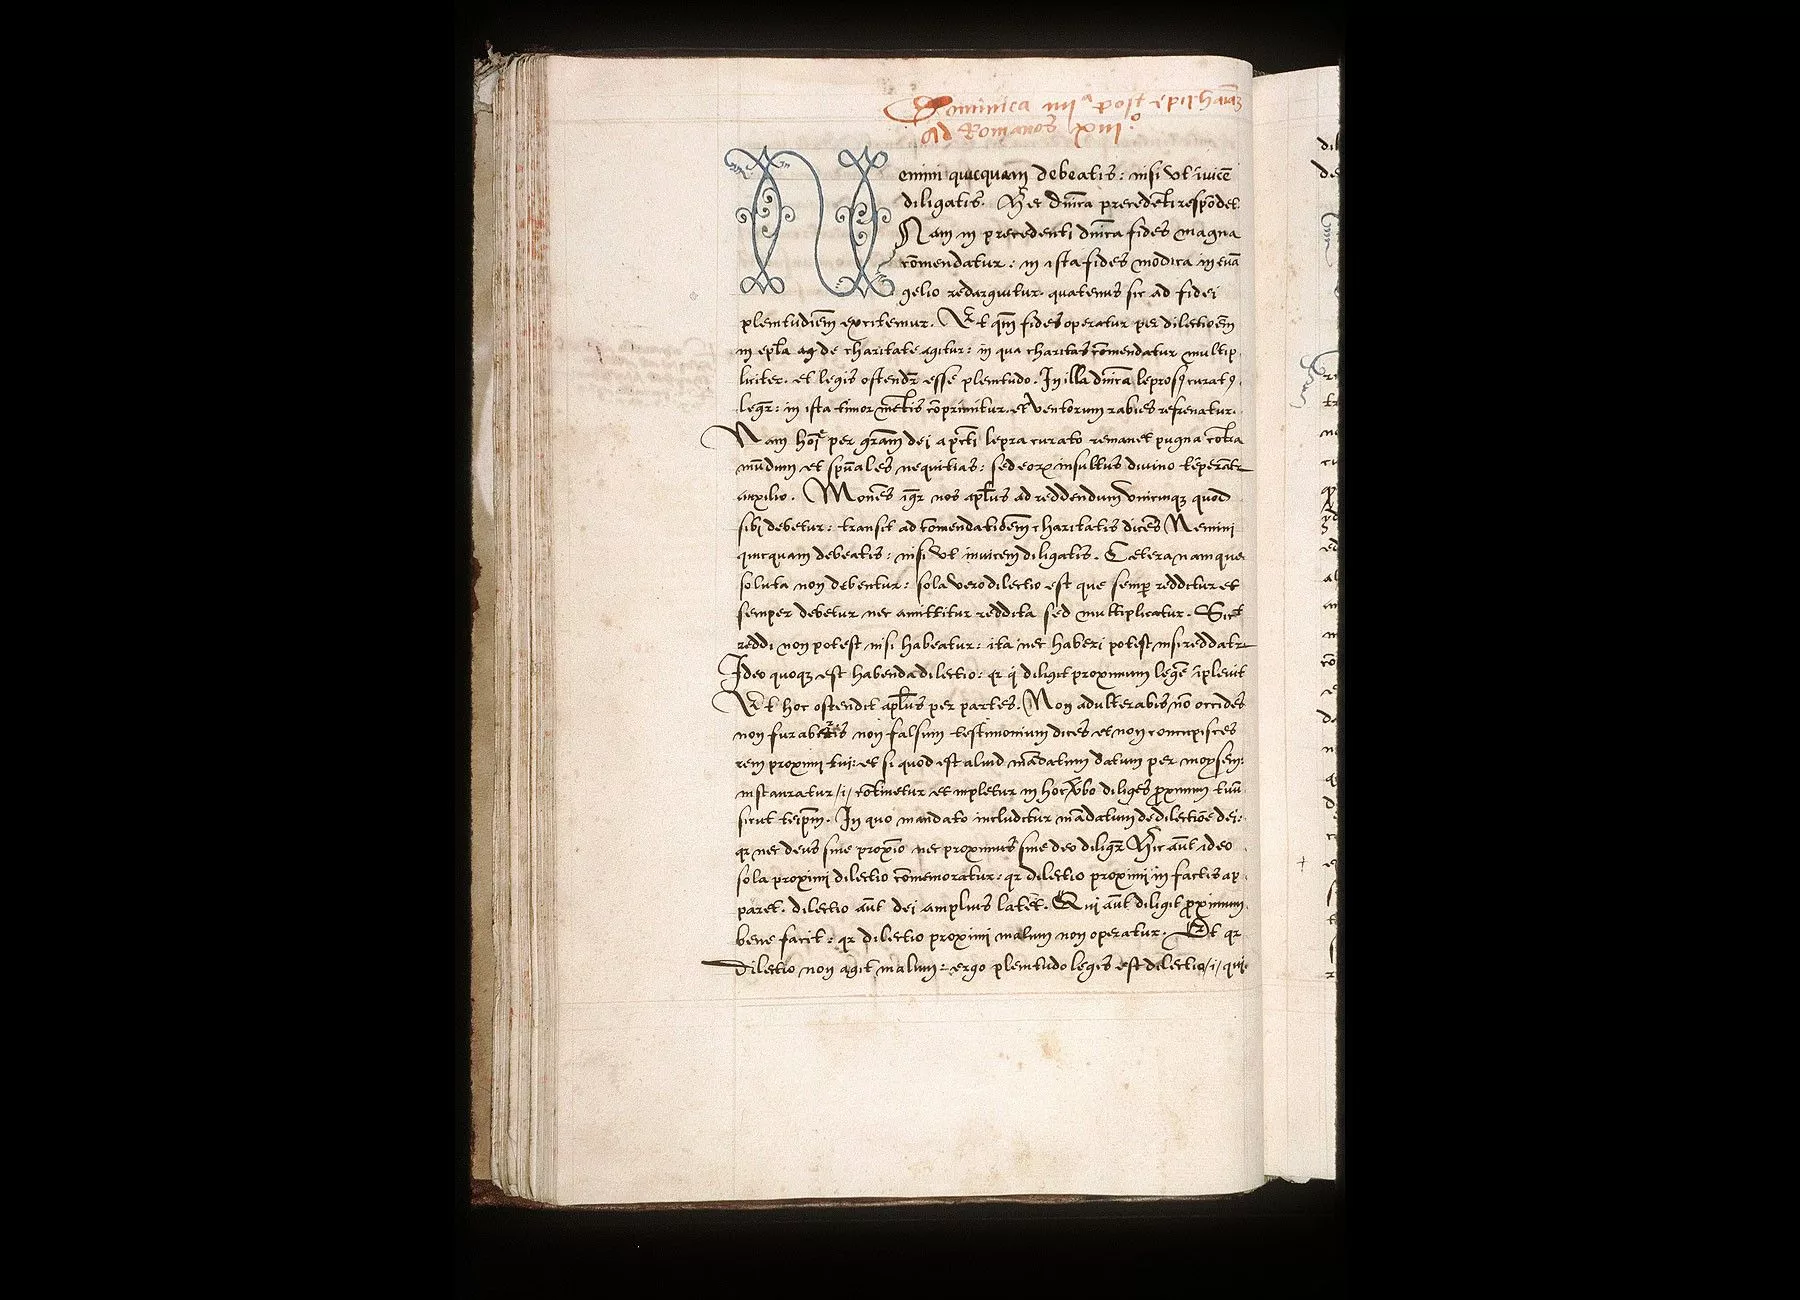 Dominica iiijᵃ post epiphaniã
Ad Romanos xiijº
Nemini quicquam debeatis: nisi vt iuicē
diligatis. Hec dñica precedēti respōdet.
Nam in precedenti dñica fides magna
cōmendatur: in ista fides modica in euã
gelio redarguitur. quatenus sic ad fidei
plenitudiēm excitemur. Et qm̄ fides operatur per dilectiōēm
in epl̄a aq̄ de charitate agitur: in qua charitas cōmendatur multip
liciter. et legis ostendr̄ esse plenitudo. In illa dñica leprosꝯ curatꝯ
legr̄: in ista timor mētis cōprimitur. et ventorum rabies refrenatur.
Nam hoī per grām dei a pctī lepra curato remanet pugna cōtra
mūdum et spūales nequitias: sed eorꝝ insultus diuino tēperātr
auxilio. Monēs igr̄ nos apl̄us ad reddendum vnicuiqꝫ quod
sibi debetur: transit ad cōmendatiōēm charitatis dicēs Nemini
quicquam debeatis: nisi vt inuicem diligatis. Cetera namque
soluta non debentur: sola vero dilectio est que semp̱ redditur et
semper debetur nec amittitur reddita sed multiplicatur. Sicᵗ
reddi non potest nisi habeatur: ita nec haberi potest nisi reddatr
Ideo quoqꝫ est habenda dilectio: qr q̇ diligit proximum legē īpleuit
Et hoc ostendit apl̄us per partes. Non adulterabis nō occides
non furaberis non falsum testimonium dices et non concupisces
rem proximi tui: et si quod est aliud mādatum datum per moysem:
instauratur /i/ cōtinetur et inpletur in hoc v̄bo diliges ꝓximum tuū
sicut teip̄m. In quo mandato includitur mādatum de dilectiōe dei:
qr nec deus sine proxīo nec proximus sine deo diligr̄ Hic aūt ideo
sola proximi dilectio cōmemoratur: qr dilectio proximi in factis ap
paret. dilectio aūt dei amplius latet. Qui aūt diligit ꝓximum
bene facit: qr dilectio proximi malum non operatur. Et qr
dilectio non agit malum: ergo plenitudo legis est dilectio /i/ quic